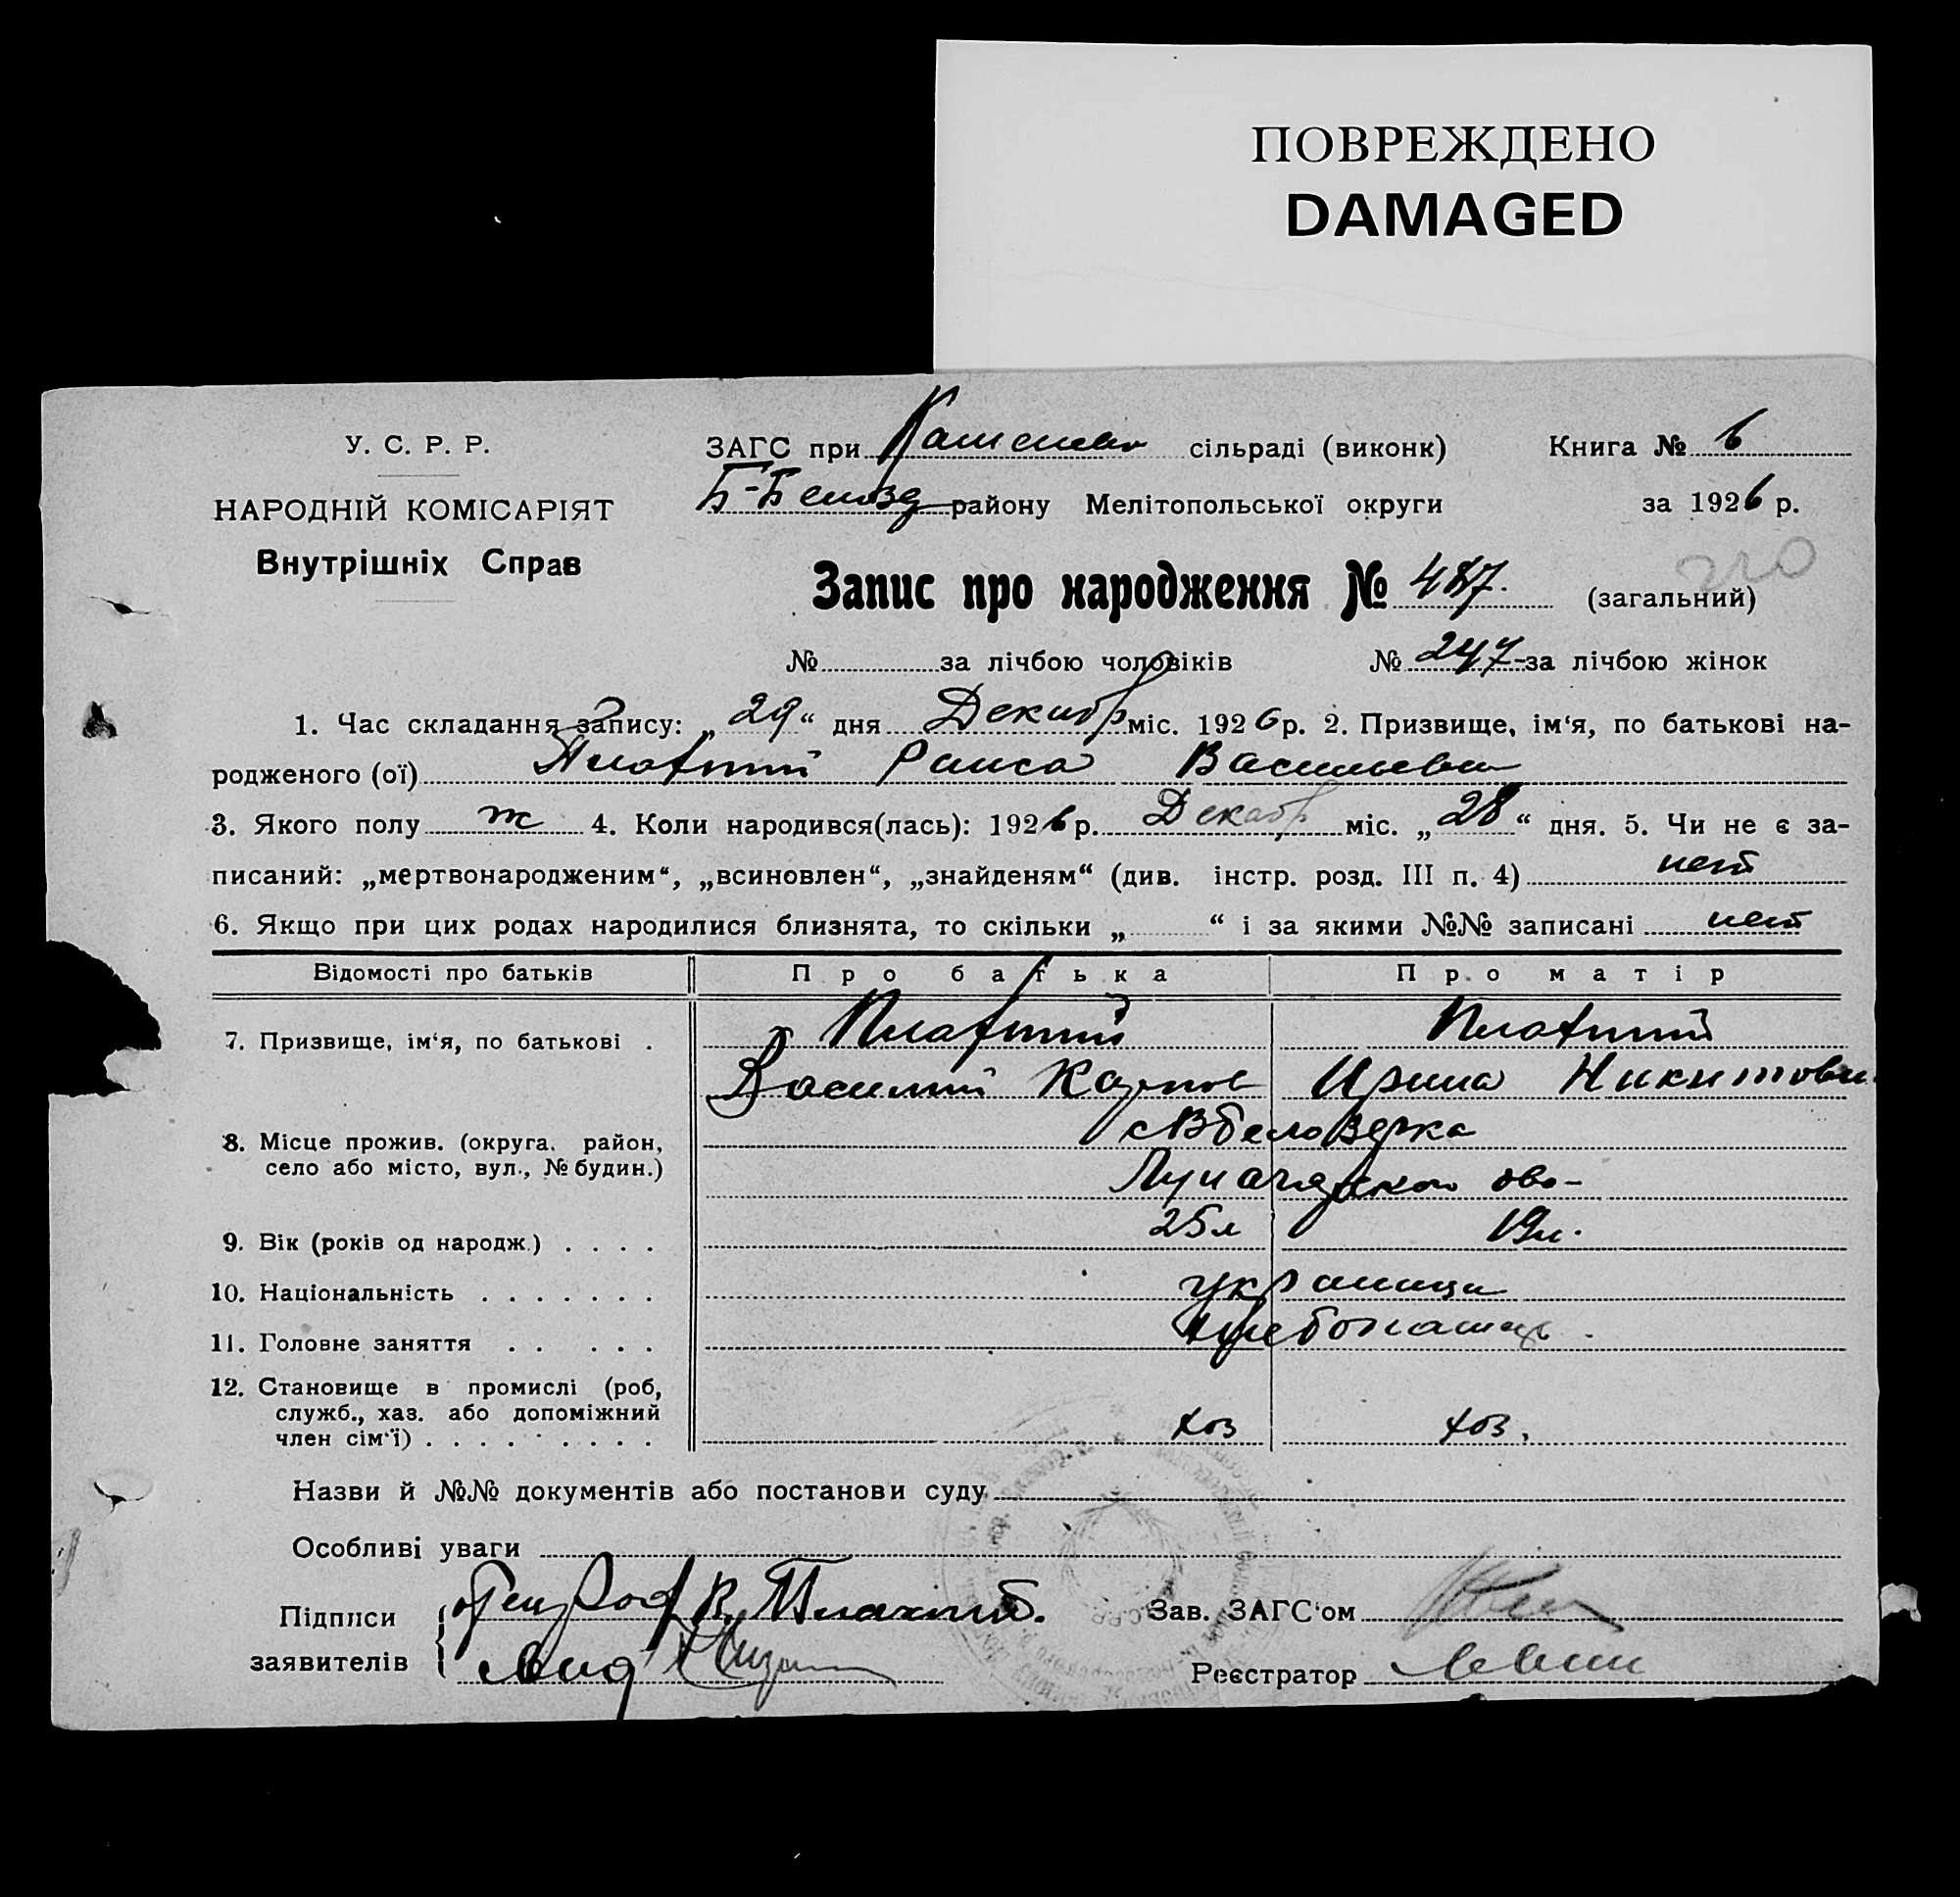 ПОВРЕЖДЕНО
DAMAGED
У. С. Р. Р.
НАРОДНІЙ КОМІСАРІЯТ
Внутрішніх Справ
ЗАГС при сільраді (виконк) Книга № 6
району Мелітопольської округи за 1926 р.
210
Запис про народження № 487. (загальний)
№ за лічбою чоловіків № 247 за лічбою жінок
1. Час складання запису: „29“ дня Декабр міс. 1926 р. 2. Призвище, ім‘я, по батькові на-
родженого (ої) Раиса Васильевн
3. Якого полу ж 4. Коли народився(лась): 1926 р. Декабр міс. „28“ дня. 5. Чи не є за-
писаний: „мертвонародженим“, „всиновлен“, „знайденям“ (див. інстр. розд. III п. 4) нет
6. Якщо при цих родах народилися близнята, то скільки „ “ і за якими №№ записані нет
Відомості про батьків Про батька Про матір
7. Призвище, ім‘я, по батькові . Плахтий Плахтий
Василий Карпов Ирина Никитовн
8. Місце прожив. (округа, район,
село або місто, вул., № будин.)
9. Вік (років од народж.) . . . . 25л 19л.
10. Національність . . . . . . . украинци
11. Головне заняття . . . . . хлебопашец.
12. Становище в промислі (роб,
служб., хаз. або допоміжний
член сім‘ї) . . . . . . . . . хоз хоз.
Назви й №№ документів або постанови суду
Особливі уваги
Підписи
заявителів
В. Плахтий.
Зав. ЗАГС‘ом
Реєстратор